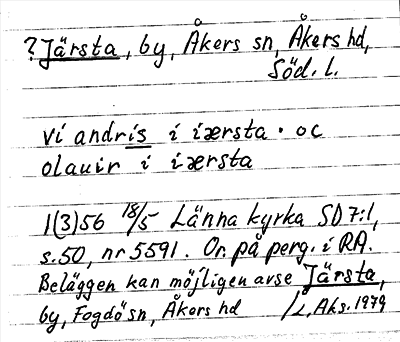 ? Järsta, by, Åkers sn, Åkers hd,
Söd. l.
vi andris i iærsta · oc
olauir i iærsta
1(3)56 18/5 Länna kyrka SD 7:1,
s. 50, nr 5591. Or. på perg. i RA.
Beläggen kan möjligen avse Järsta,
by, Fogdö sn, Åkers hd /L. Aks. 1979